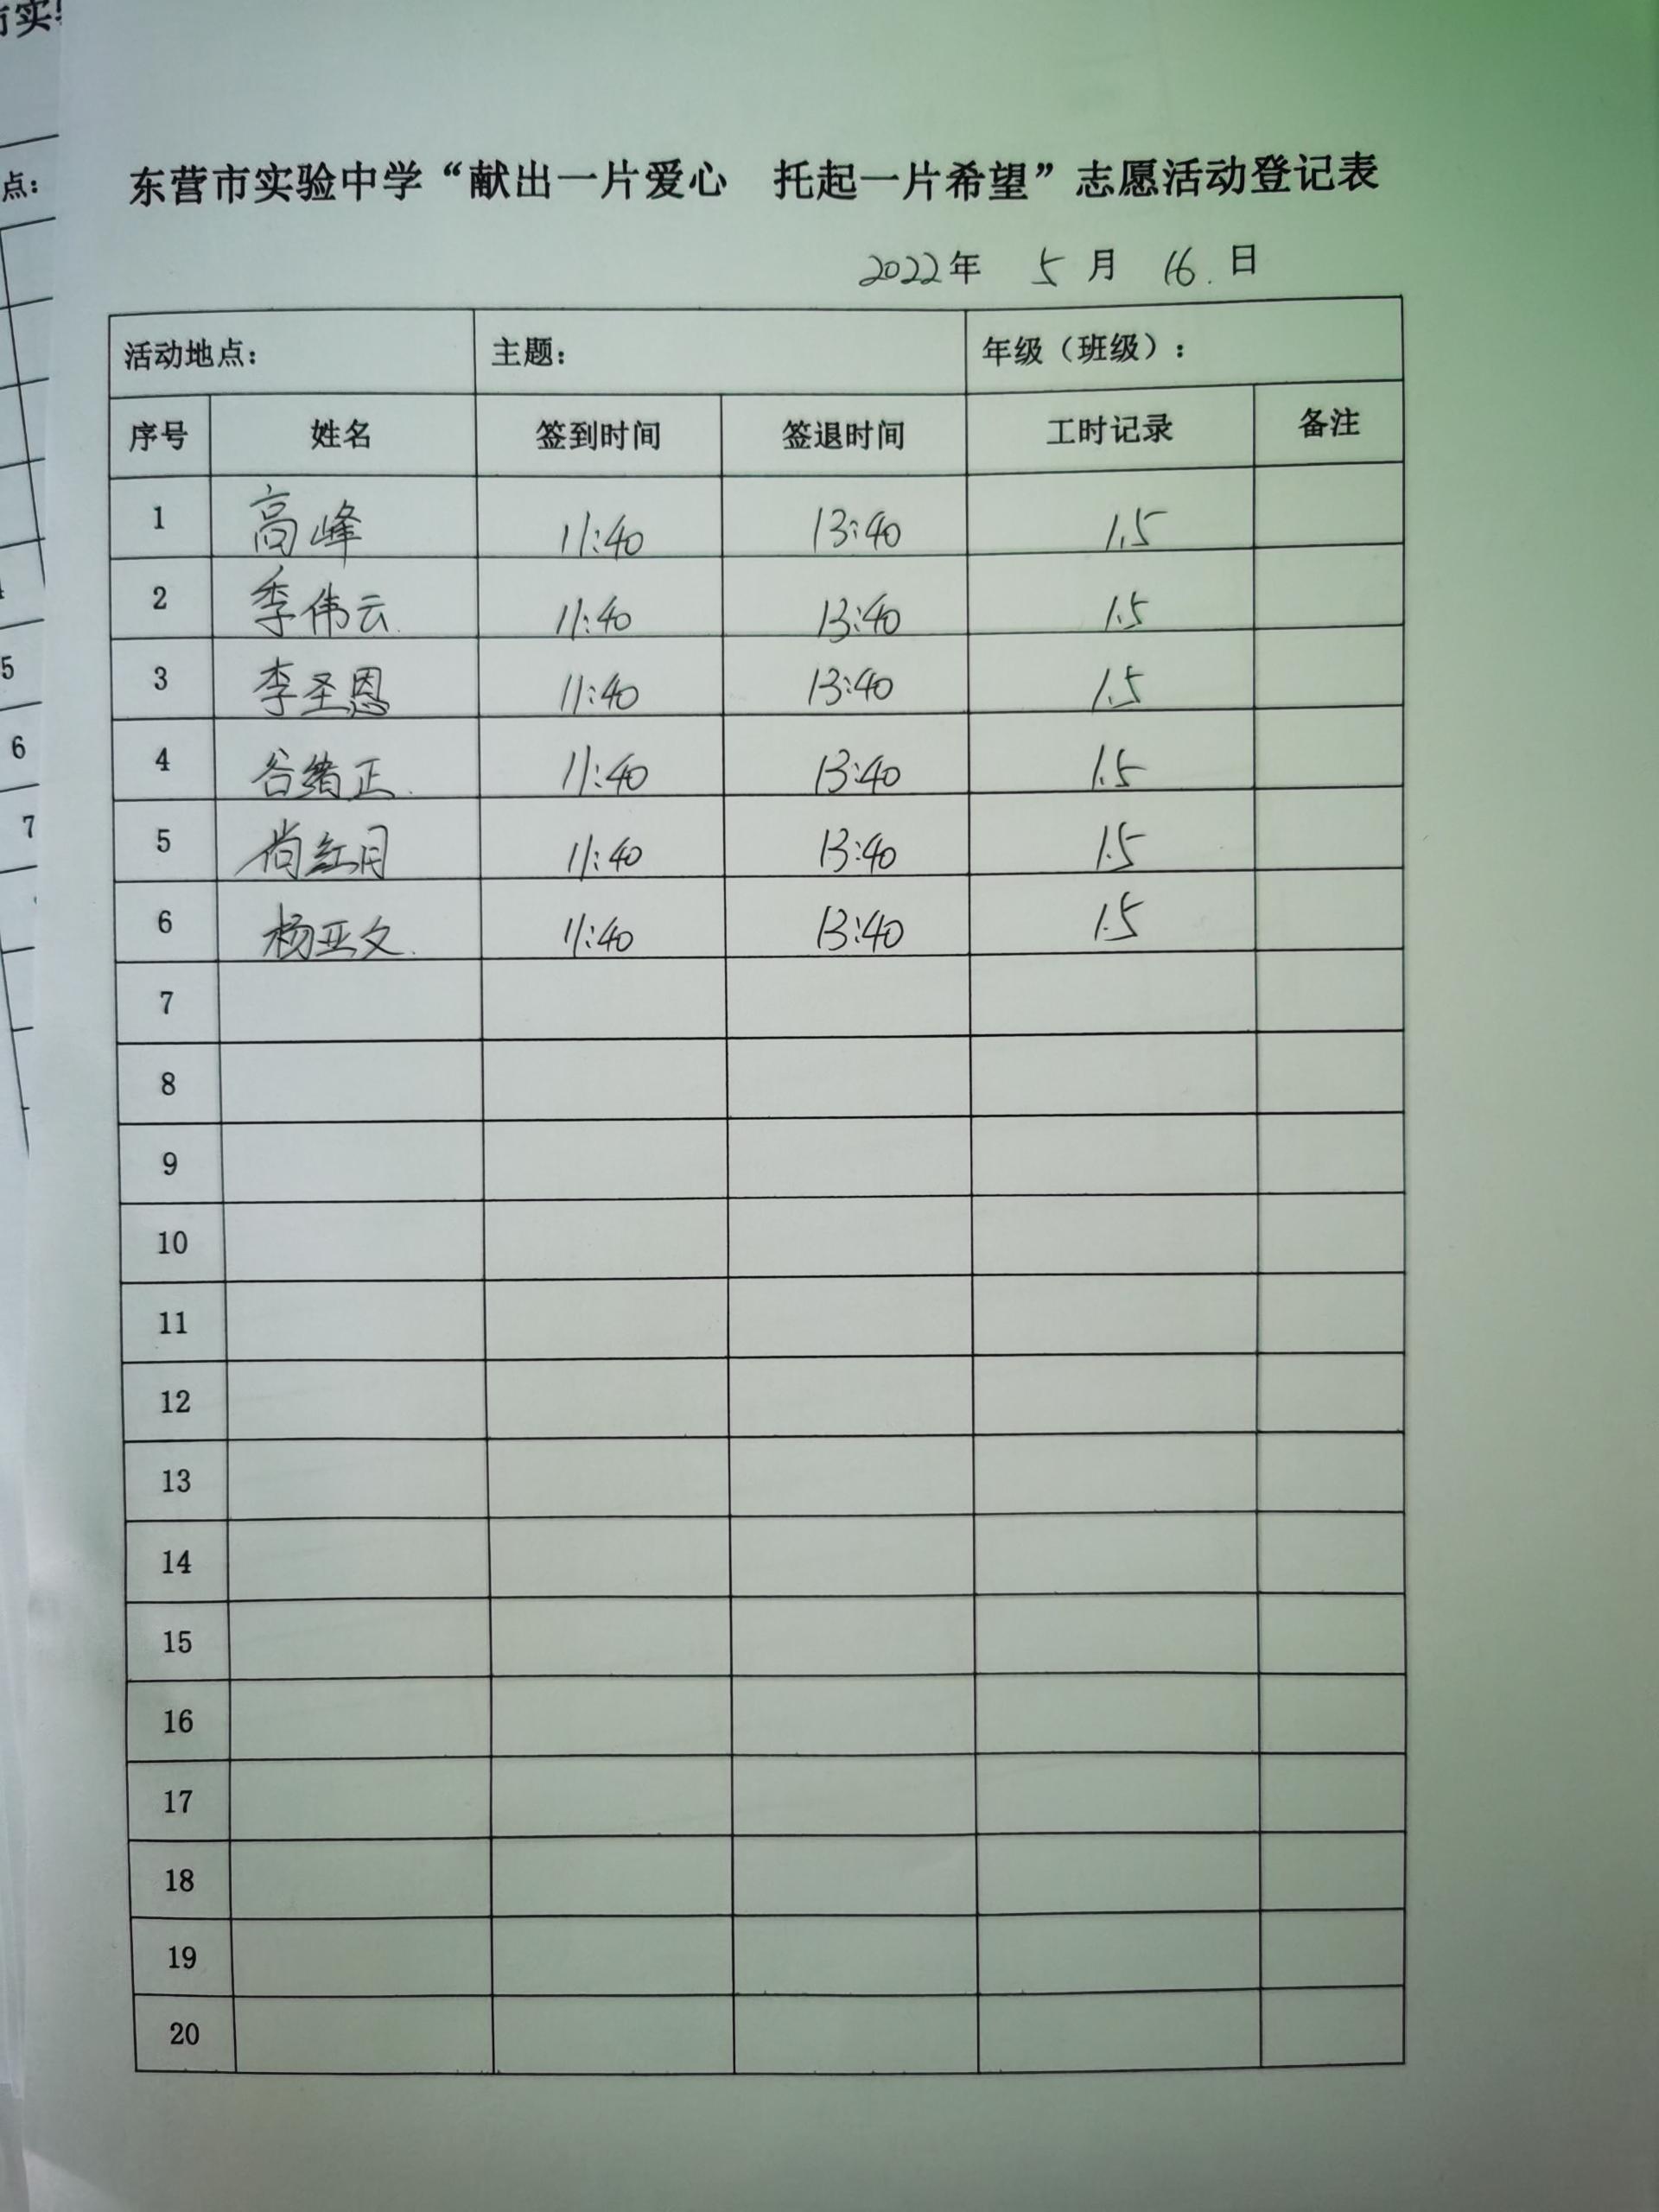 市实
点:
5
6
7
东营市实验中学“献出一片爱心 托起一片希望”志愿活动登记表
2022年 5 月 16. 日
活动地点: 主题: 年级（班级）:
序号 姓名 签到时间 签退时间 工时记录 备注
1 高峰 11:40 13:40 1.5
2 季伟云 11:40 13:40 1.5
3 李圣恩 11:40 13:40 1.5
4 谷绪正 11:40 13:40 1.5
5 尚红月 11:40 13:40 1.5
6 杨亚文 11:40 13:40 1.5
7
8
9
10
11
12
13
14
15
16
17
18
19
20